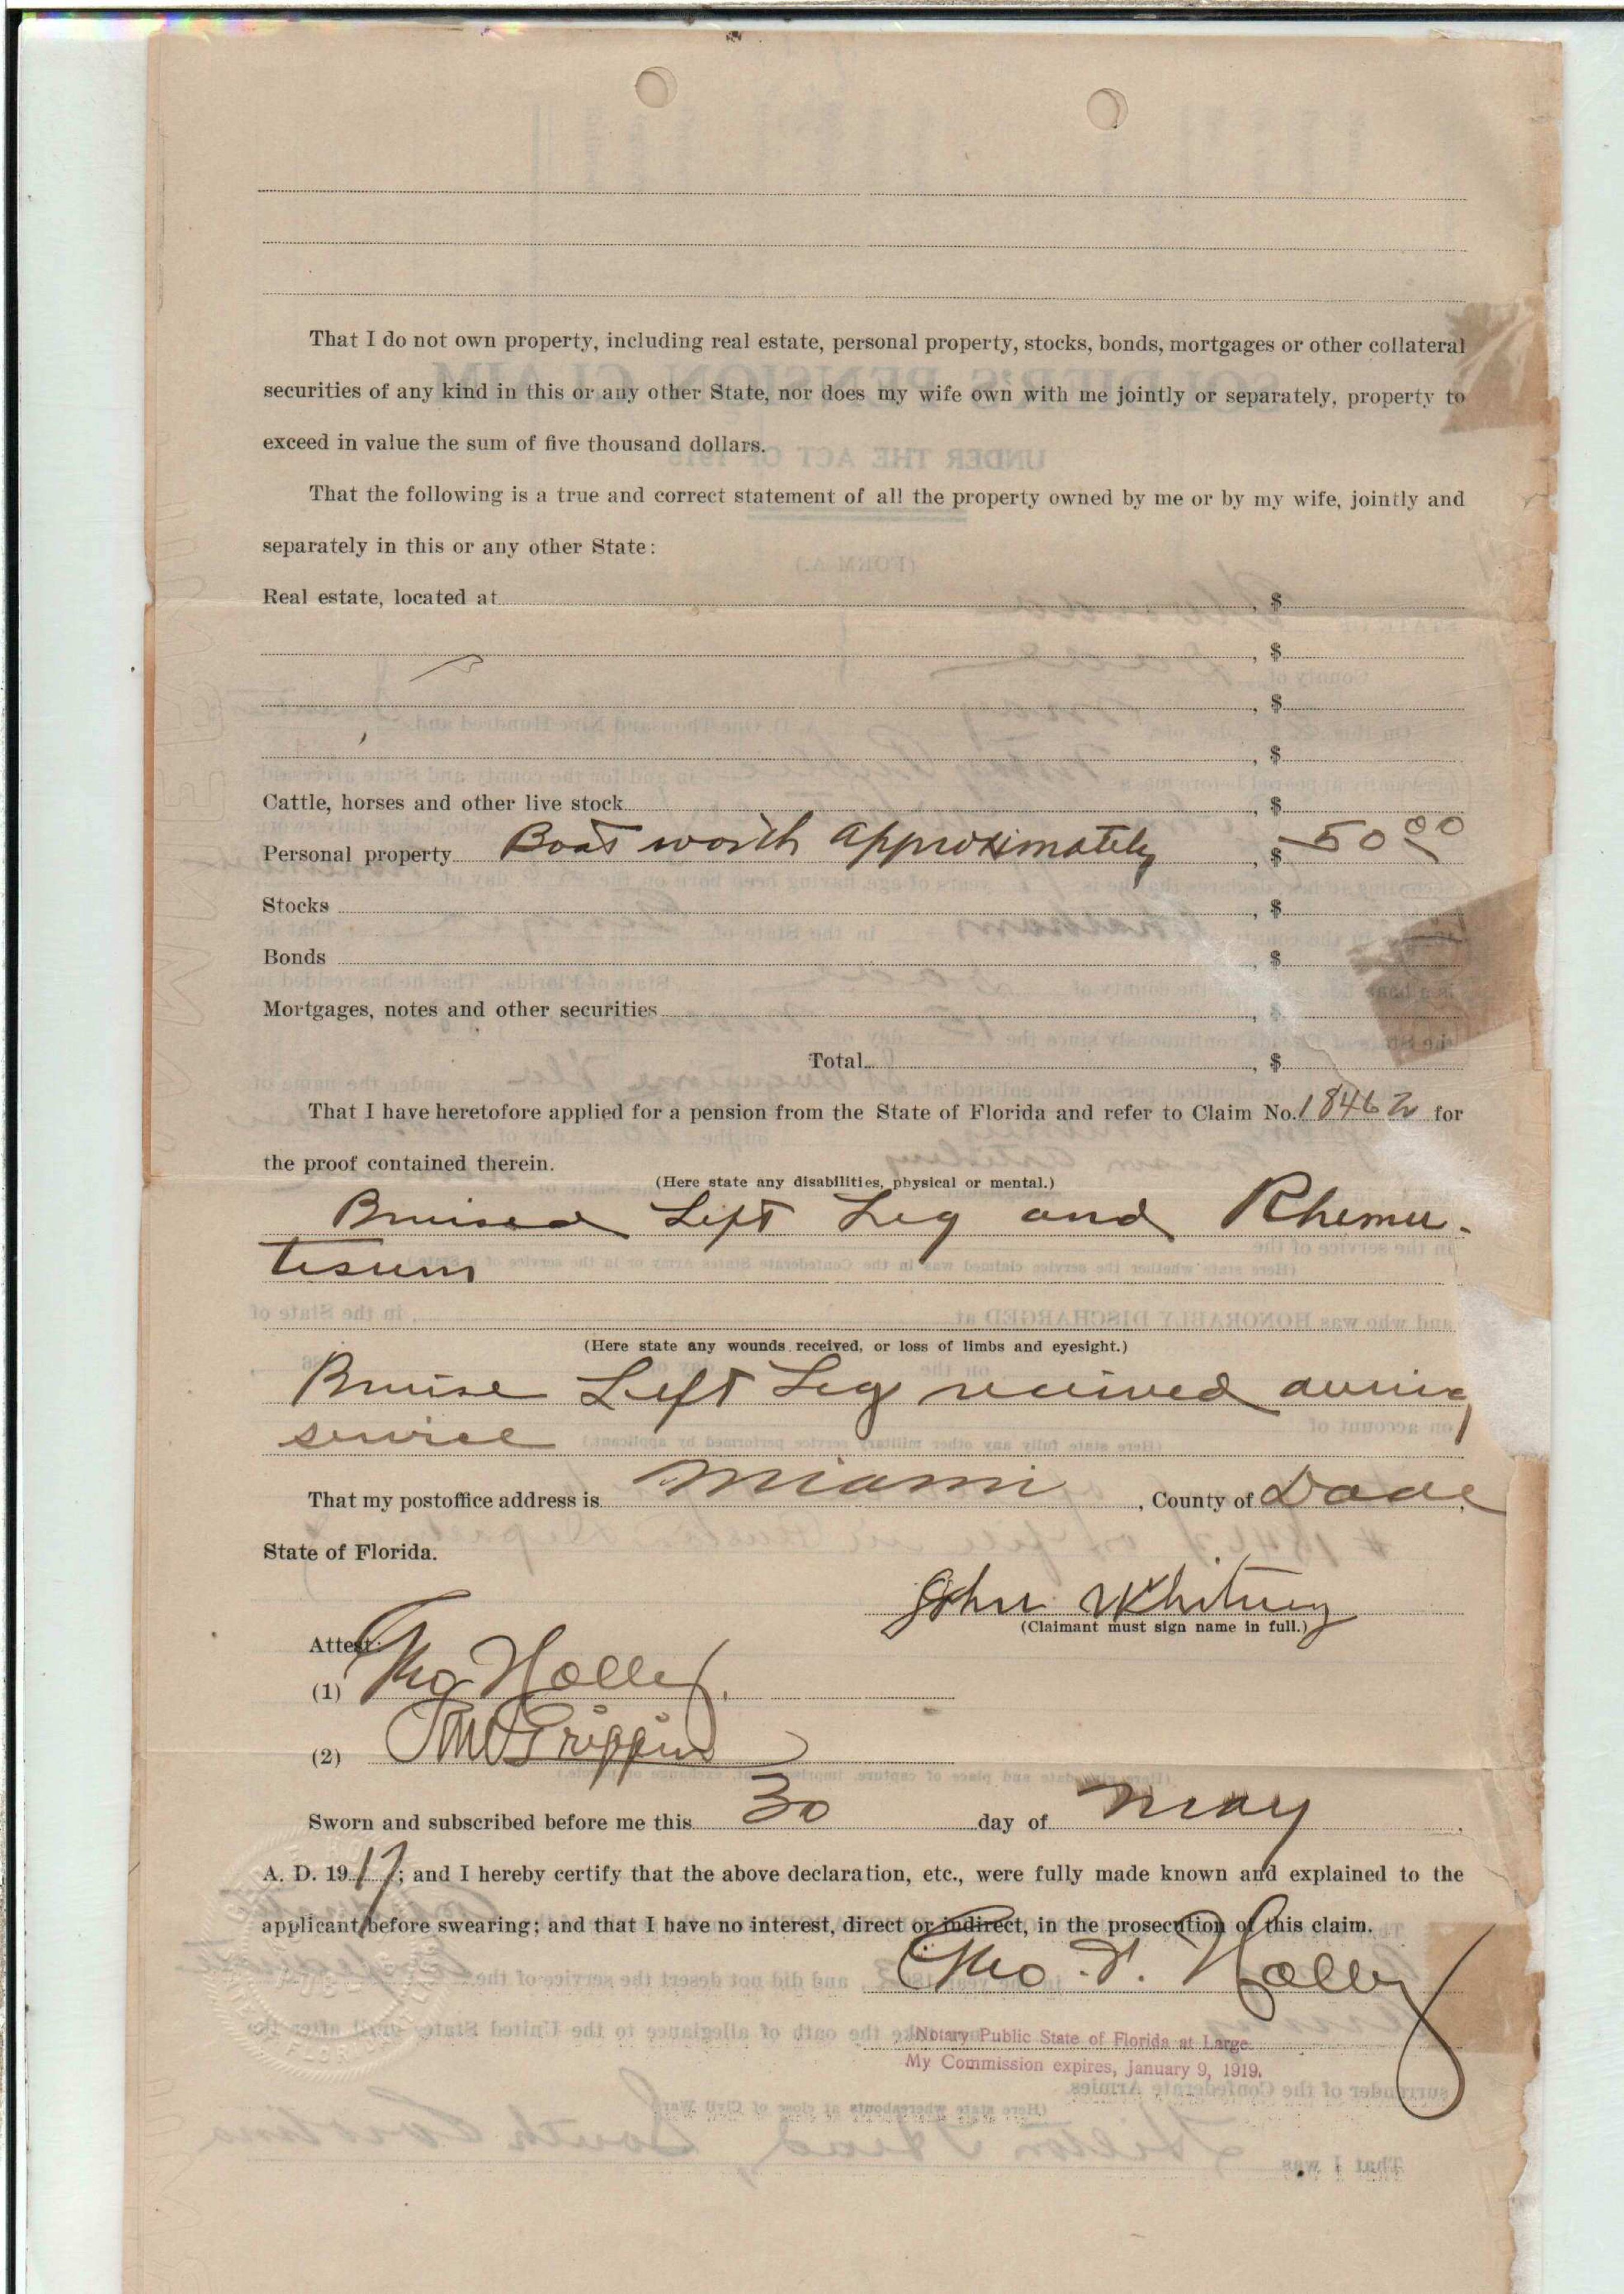 That I do not own property, including real estate, personal property, stocks, bonds, mortgages or other collateral
securities of any kind in this or any other State, nor does my wife own with me jointly or separately, property to
exceed in value the sum of five thousand dollars.
That the following is a true and correct statement of all the property owned by me or by my wife, jointly and
separately in this or any other State:
Real estate, located at , $
, $
, $
, $
Cattle, horses and other live stock , $
Personal property Boat worth approximately , $ 50 00
Stocks , $
Bonds , $
Mortgages, notes and other securities , $
Total , $
That I have heretofore applied for a pension from the State of Florida and refer to Claim No. 18462 for
the proof contained therein.
(Here state any disabilities, physical or mental.)
Bruised Left Leg and Rhemu-
tisum
(Here state any wounds received, or loss of limbs and eyesight.)
Bruise Left Leg received during
service
That my postoffice address is Miami , County of Dade,
State of Florida.
John Whitney
(Claimant must sign name in full.)
Attest:
(1) Tho Holley
(2) Griffin
Sworn and subscribed before me this 30 day of May
A. D. 1917; and I hereby certify that the above declaration, etc., were fully made known and explained to the
applicant before swearing; and that I have no interest, direct or indirect, in the prosecution of this claim.
Tho. F. Holley
Notary Public State of Florida at Large
My Commission expires, January 9, 1919.